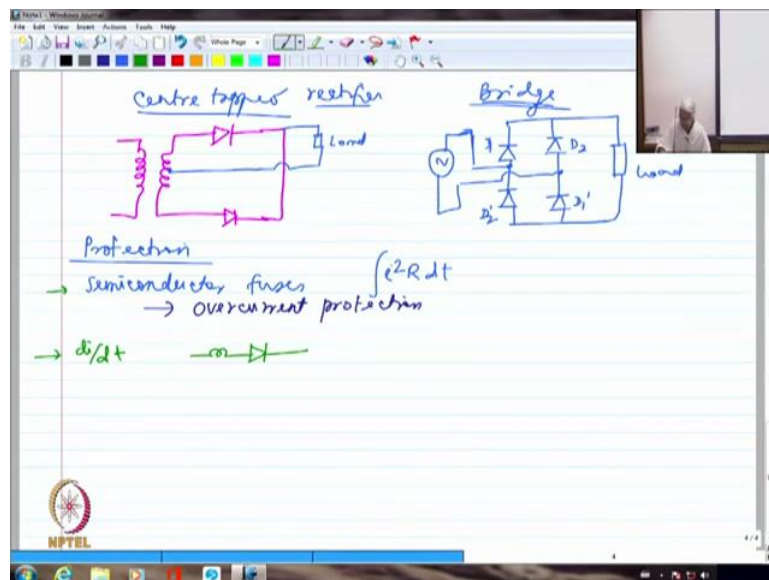 Note1 - Windows Journal
File Edit View Insert Actions Tools Help
Whole Page
B I
Centre tapped rectifier
Bridge
Load
D2
Load
D2'
D1'
Protection
→ semiconductor fuses ∫i²R dt
→ overcurrent protection
→ di/dt
NPTEL
4 / 4
4